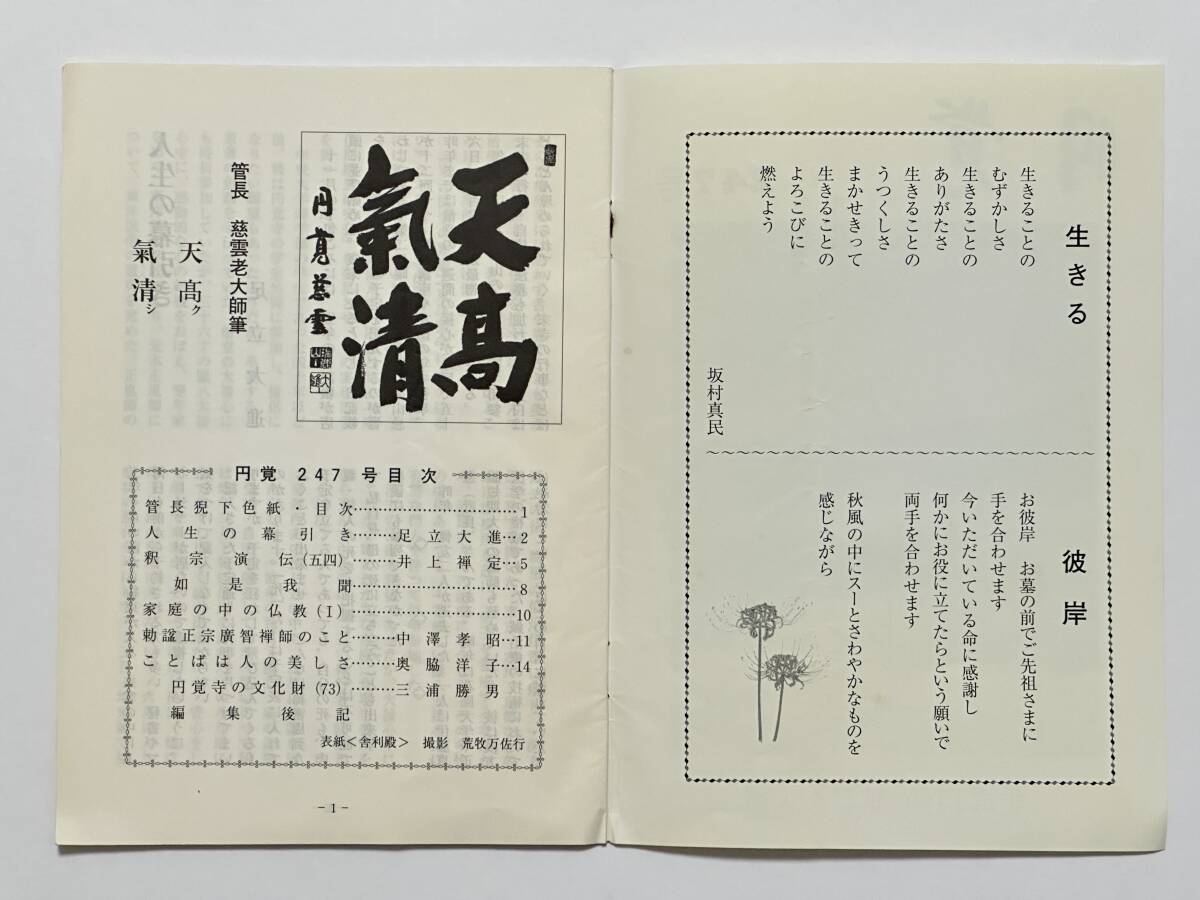 生きる
生きることの
むずかしさ
生きることの
ありがたさ
生きることの
うつくしさ
まかせきって
生きることの
よろこびに
燃えよう
坂村真民
彼岸
お彼岸　お墓の前でご先祖さまに
手を合わせます
今いただいている命に感謝し
何かにお役に立てたらという願いで
両手を合わせます
秋風の中にスーとさわやかなものを
感じながら
天高
氣清
円覚慈雲
管長　慈雲老大師筆
天高ク
氣清シ
円覚 247 号目次
管長猊下色紙・目次……………………………1
人生の幕引き………足立大進…2
釈宗演伝(五四)………井上禅定…5
如是我聞……………………………8
家庭の中の仏教(I)……………………………10
勅諡正宗廣智禅師のこと………中澤孝昭…11
ことばは人の美しさ………奥脇洋子…14
円覚寺の文化財(73)………三浦勝男
編集後記
表紙<舎利殿>　撮影　荒牧万佐行
－1－